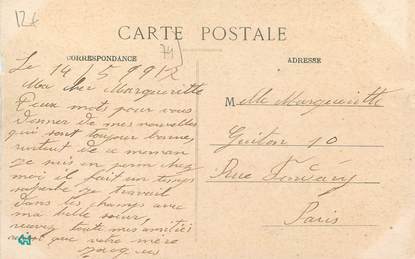 12€
CARTE POSTALE
74
CORRESPONDANCE
ADRESSE
Le 14/5
Ma cher Margueritte
Deux mots pour vous
donner de mes nouvelles
qui sont toujour bonne,
surtout de ce moman
je suis en perm chez
moi il fait un temps
superbe je travail
dans les champs avec
ma belle sœur,
recevez toute mes amitiés
que votre mère
Mlle Margueritte
Guiton 10
Rue
Paris